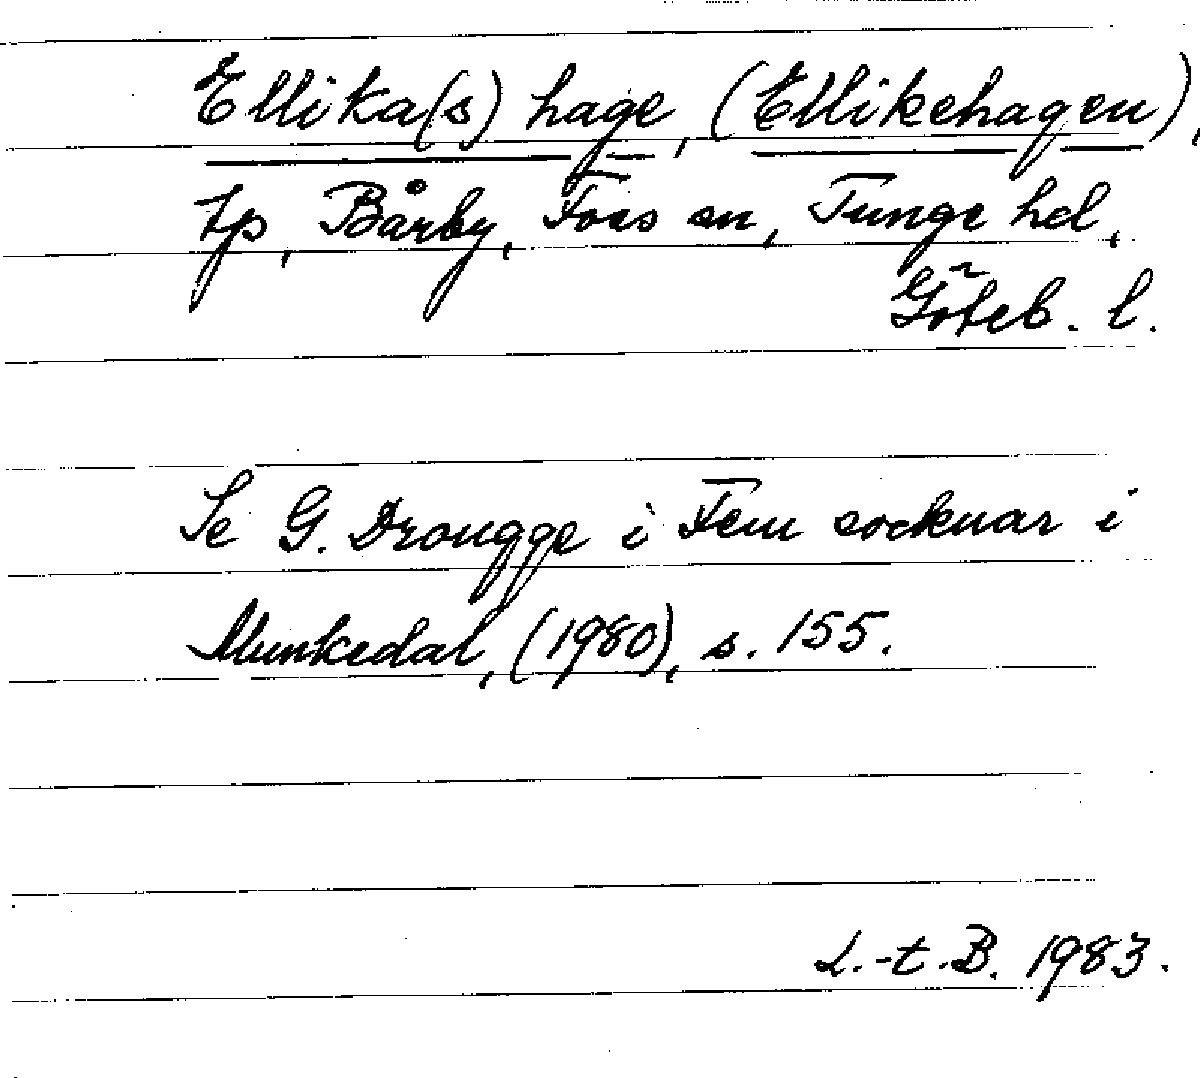 Ellika(s) hage, (Ellikehagen),
tp, Bårby, Foss sn, Tunge hd,
Göteb. l.
Se G. Drougge i Fem socknar i
Munkedal, (1980), s. 155.
L.-t.B. 1983.